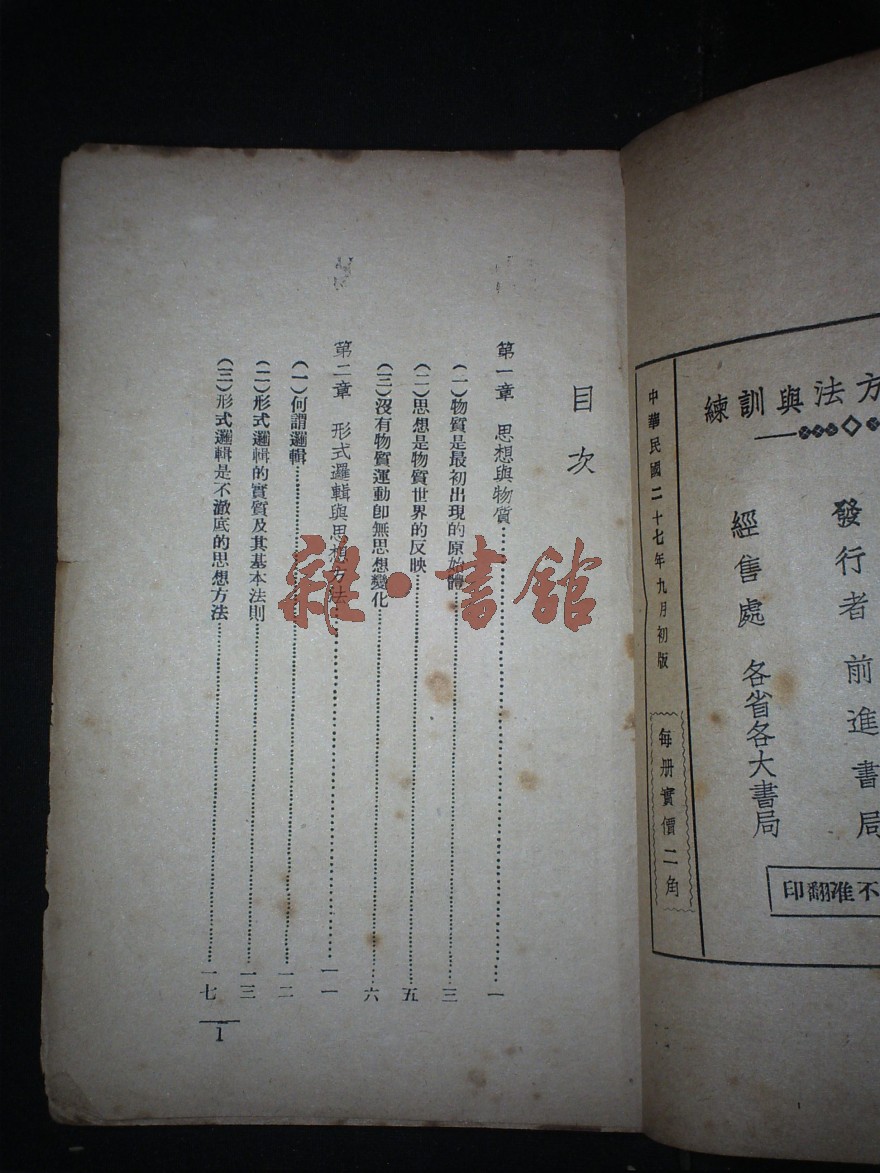 方法與訓練
發行者 前進書局
經售處 各省各大書局
不准翻印
中華民國二十七年九月初版
每册實價二角
目次
第一章 思想與物質 一
(一)物質是最初出現的原始體 三
(二)思想是物質世界的反映 五
(三)沒有物質運動卽無思想變化 六
第二章 形式邏輯與思想方法 一一
(一)何謂邏輯 一二
(二)形式邏輯的實質及其基本法則 一三
(三)形式邏輯是不澈底的思想方法 一七
1
雜·書館